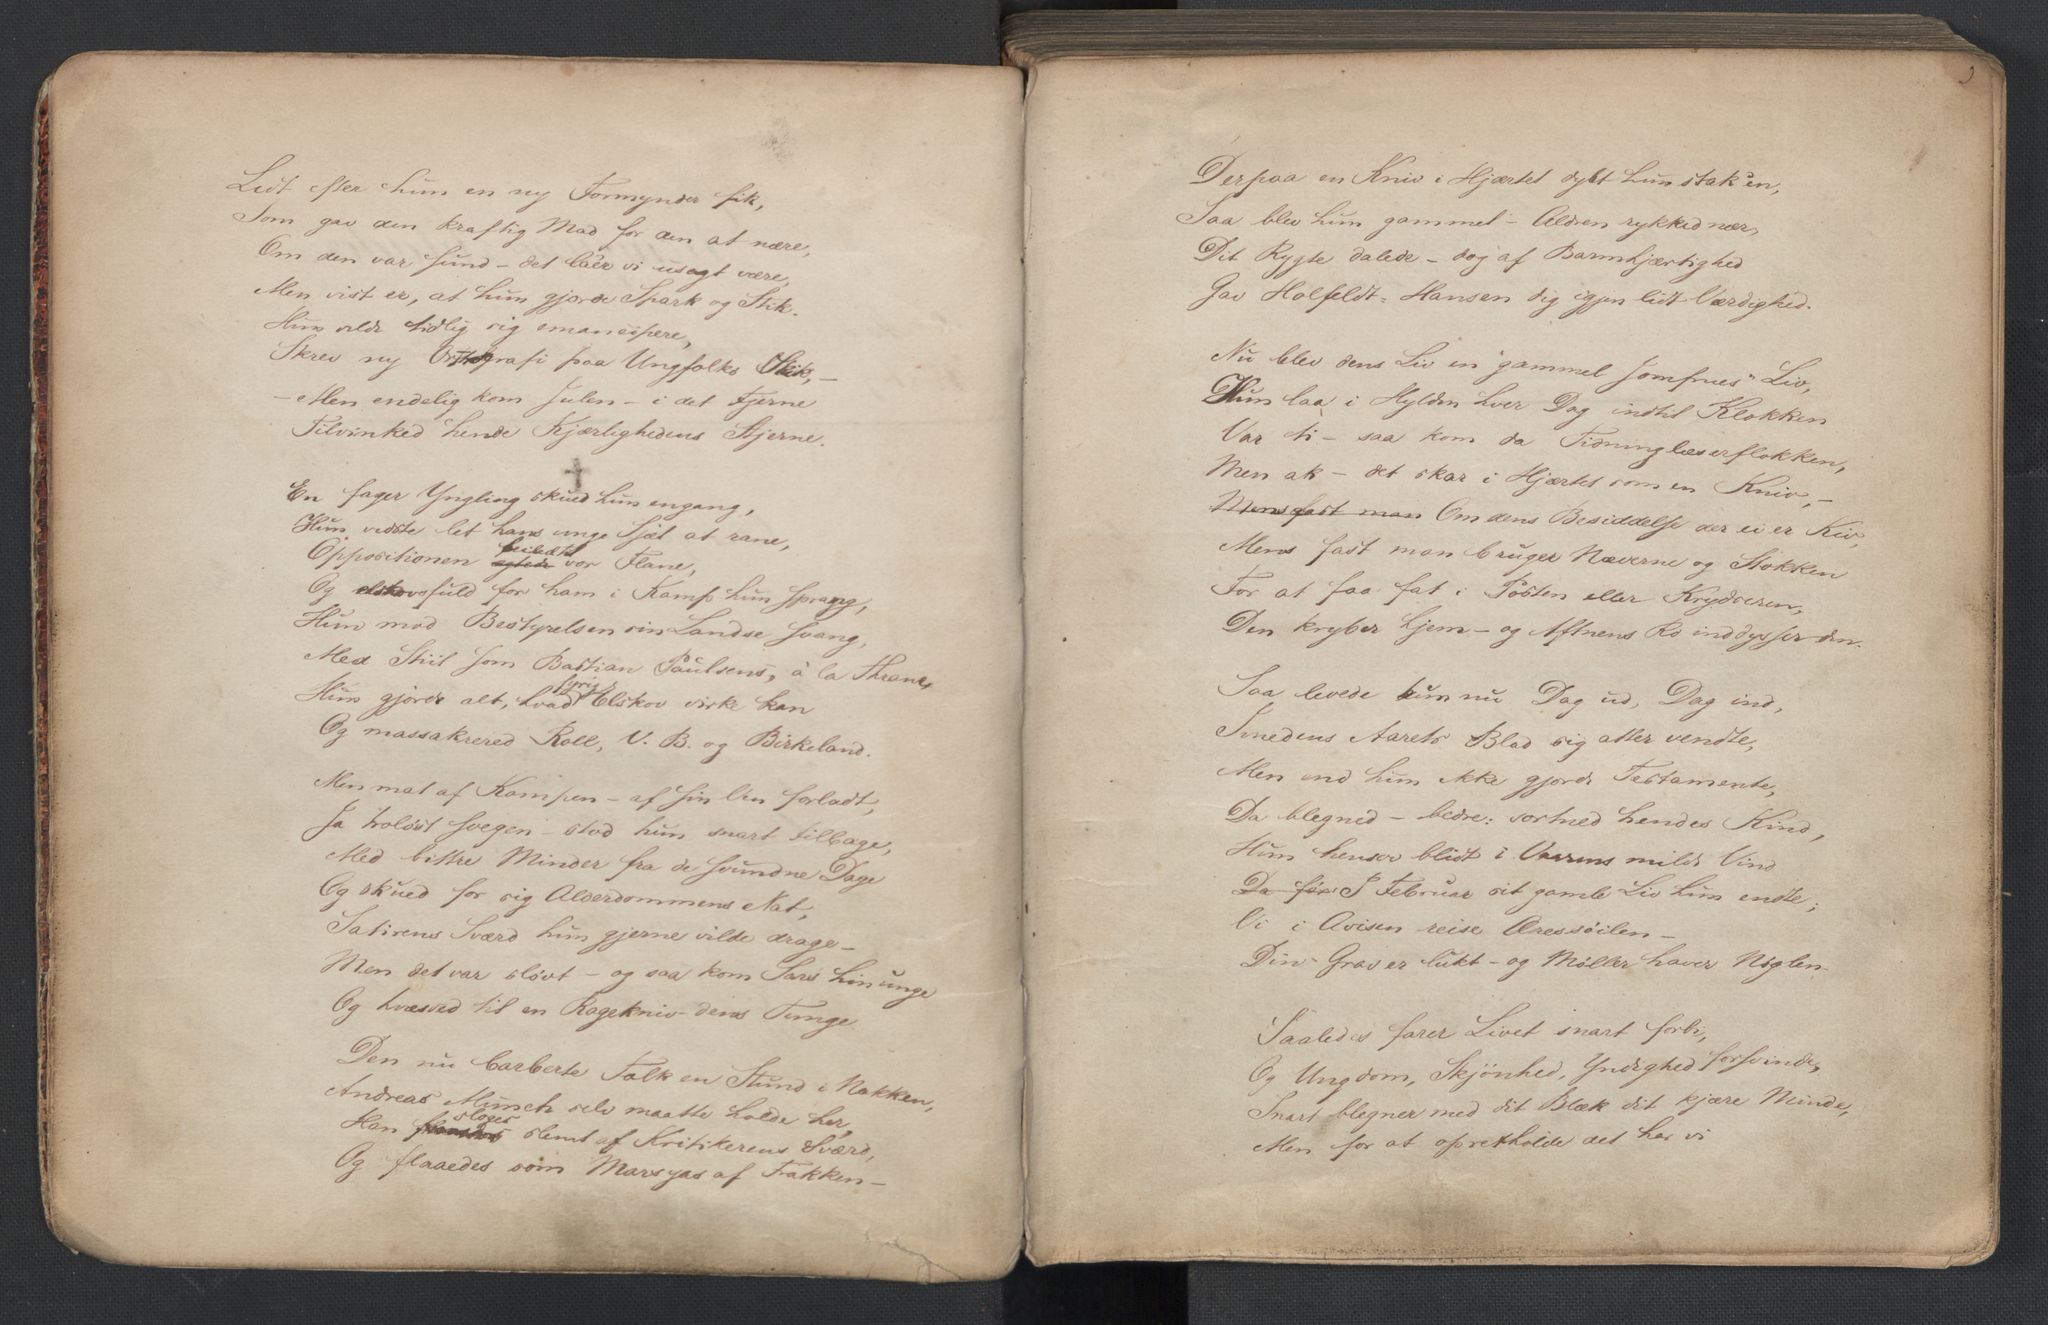 Lidt efter hun en ny Formynder fik,
Som gav den kraftig Mad for den at nære,
Om den var sund – det laer vi usagt være,
Men vist er, at hun gjorde Spark og Stik.
Hun vilde tidlig sig emancipere,
Skrev ny Orthografi paa Ungfolks Skik, –
– Men endelig kom Julen – i det Fjerne
Tilvinked hende Kjærlighedens Stjerne.
En fager Yngling skued hun engang,
Hun vidste let hans unge Sjæl at rane,
Oppositionen vor Flane,
Og elskovsfuld for ham i Kamp hun sprang,
Hun mod Bestyrelsen sin Landse svang,
Med Stiil som Bastian Paulsens, à la Thrane,
Hun gjorde alt, hvad fyrig Elskov virke kan
Og massakrered Roll, V. B. og Birkeland.
Men mat af Kampen – af sin Ven forladt,
Ja troløst svegen – stod hun snart tilbage,
Med bittre Minder fra de svundne Dage
Og skued for sig Alderdommens Nat,
Satirens Sværd hun gjerne vilde drage –
Men det var sløvt – og saa kom Sars hin unge
Og hvæsved til en Ragekniv dens Tunge.
Den nu barberte Folk en Stund i Nakken,
Andreas Munch selv maatte holde her,
Han sloges slemt af Kritikerens Sværd,
Og flaaedes som Marsyas af Frakken –
2
Derpaa en Kniv i Hjærtet dybt hun stak'en,
Saa blev hun gammel – Aldren rykked nær,
Dit Rygte dalede – dog af Barmhjærtighed
Gav Holfeldt-Hansen dig igjen lidt Værdighed.
Nu blev dens Liv en "gammel Jomfrues" Liv,
Hun laa i Hylden hver Dag indtil Klokken
Var ti – saa kom da Tidninglæserflokken,
Men ak – det skar i Hjærtet som en Kniv, –
Mens fast man Om dens Besiddelse der ei er Kiv,
Mens fast man bruger Næverne og Stokken
For at faa fat i Posten eller Krydseren,
Den kryber hjem – og Aftnens Ro inddysser den.
Saa levede hun nu Dag ud, Dag ind,
Imedens Aarets Blad sig atter vendte,
Men end hun ikke gjorde Testamente,
Da blegned – bedre: sortned hendes Kind,
Hun henser blidt i Vaarens milde Vind
Da før I Februar sit gamle Liv hun endte;
Vi i Avisen reise Æressøilen –
Din Grav er lukt – og Møller haver Nøglen.
Saaledes farer Livet snart forbi,
Og Ungdom, Skjønhed, Yndighed forsvinde,
Snart blegner med dit Blæk dit kjære Minde,
Men for at opretholde det har vi